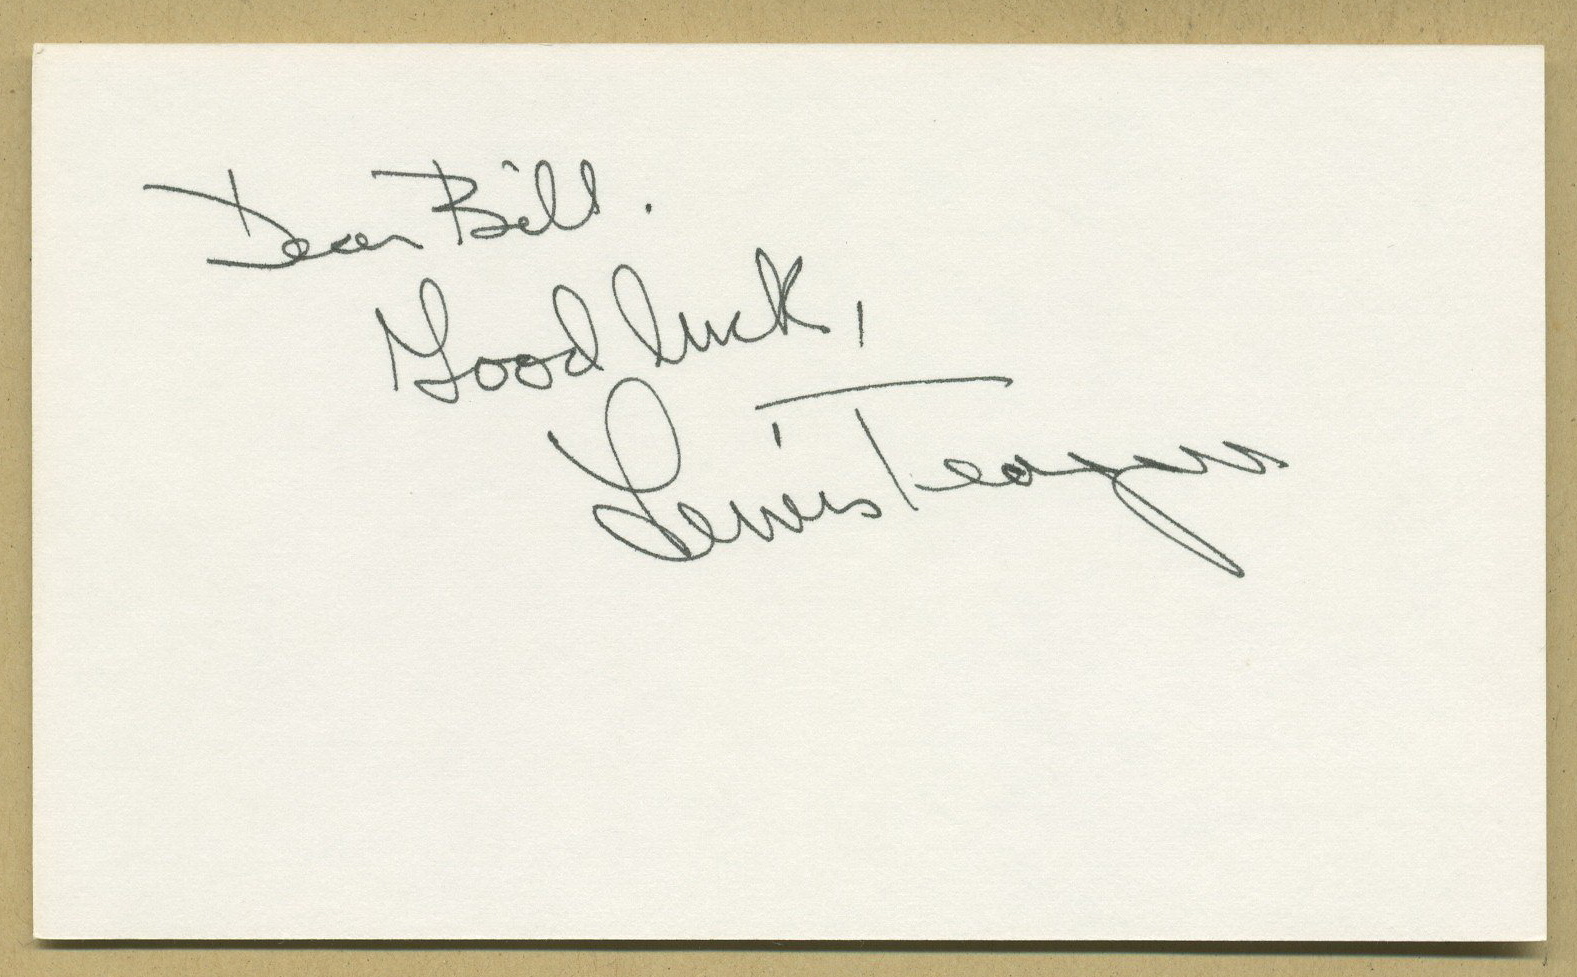 Dear Bill.
Good luck,
Lewis Teague